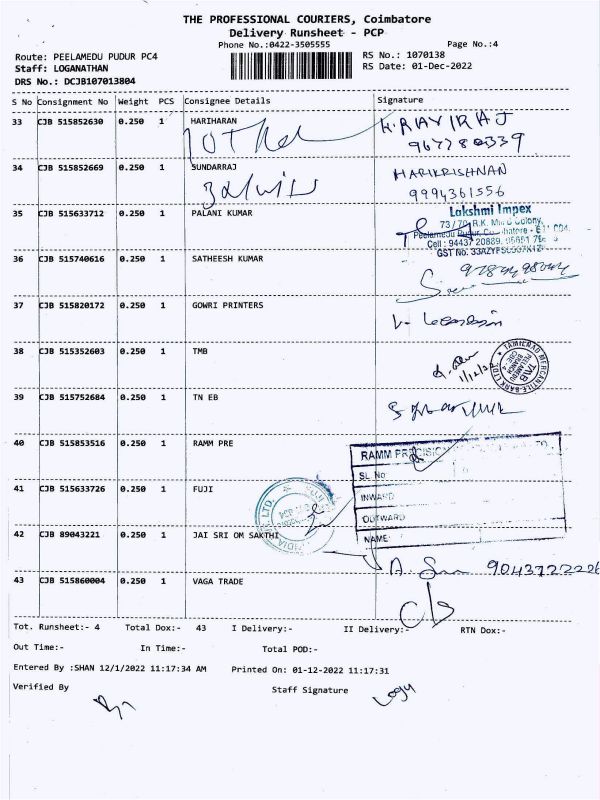 THE PROFESSIONAL COURIERS, Coimbatore
Delivery Runsheet - PCP
Phone No.:0422-3505555 Page No.:4
Route: PEELAMEDU PUDUR PC4 RS No.: 1070138
Staff: LOGANATHAN RS Date: 01-Dec-2022
DRS No.: DCJB107013804
S No Consignment No Weight PCS Consignee Details Signature
33 CJB 515852630 0.250 1 HARIHARAN K.RAVIRAJ
34 CJB 515852669 0.250 1 SUNDARRAJ HARIKRISHNAN
9994361556
35 CJB 515633712 0.250 1 PALANI KUMAR Lakshmi Impex
36 CJB 515740616 0.250 1 SATHEESH KUMAR
37 CJB 515820172 0.250 1 GOWRI PRINTERS
38 CJB 515352603 0.250 1 TMB
1/12/22
TAMILNAD MERCANTILE BANK LTD.
39 CJB 515752684 0.250 1 TN EB
40 CJB 515853516 0.250 1 RAMM PRE
RAMM PRECISION
SL No
41 CJB 515633726 0.250 1 FUJI INWARD
OUTWARD
42 CJB 89043221 0.250 1 JAI SRI OM SAKTHI NAME
9043722226
43 CJB 515860004 0.250 1 VAGA TRADE
Tot. Runsheet:- 4 Total Dox:- 43 I Delivery:- II Delivery:- RTN Dox:-
Out Time:- In Time:- Total POD:-
Entered By :SHAN 12/1/2022 11:17:34 AM Printed On: 01-12-2022 11:17:31
Verified By Staff Signature
Logu